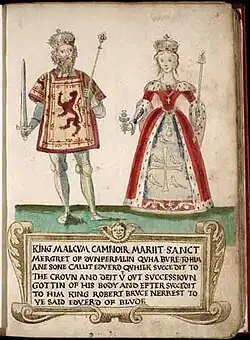 KING MALCVM CAMNOIR MARIIT SANCT
MERGRET OF DVNFERMLIN QVHA BVRE TO HIM
ANE SONE CALLIT EDVERD QVHILK SVCCEDIT TO
THE CROVN AND DEIT VOVT SVCCESSIOVN
GOTTIN OF HIS BODY AND EFTER SVCCEDIT
TO HIM KING ROBERT BRVCE NERREST TO
YE SAID EDVERD OF BLVOR